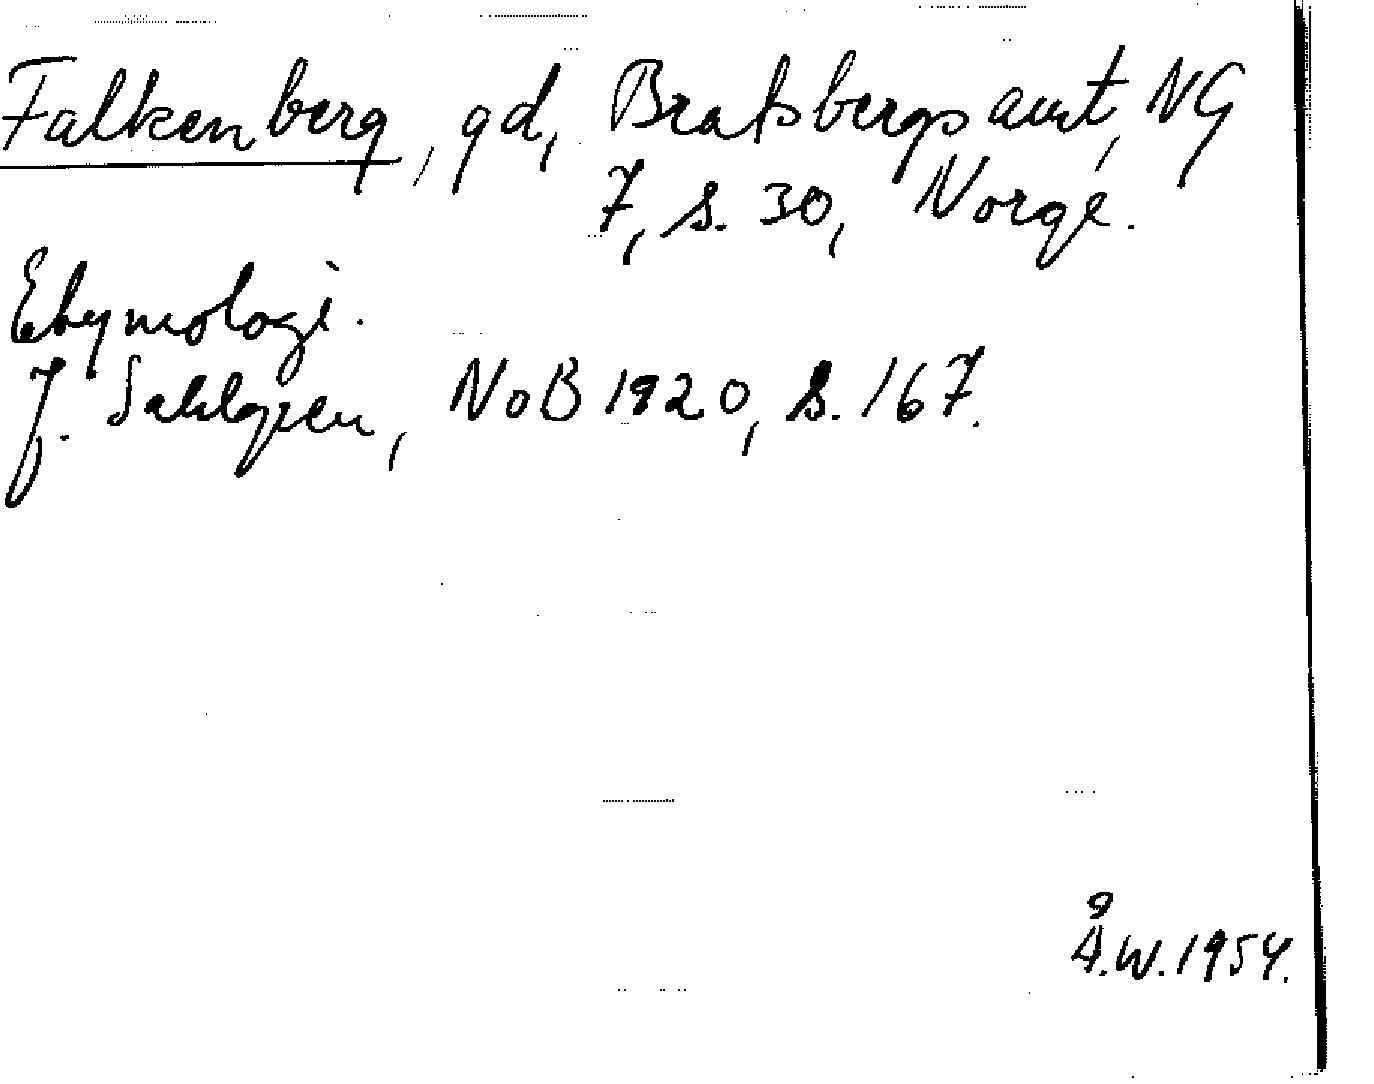 Falkenberg, gd, Bratsbergs amt, NG
7, s. 30, Norge.
Etymologi.
J. Sahlgren, NoB 1920, s. 167.
Å.W. 1954.